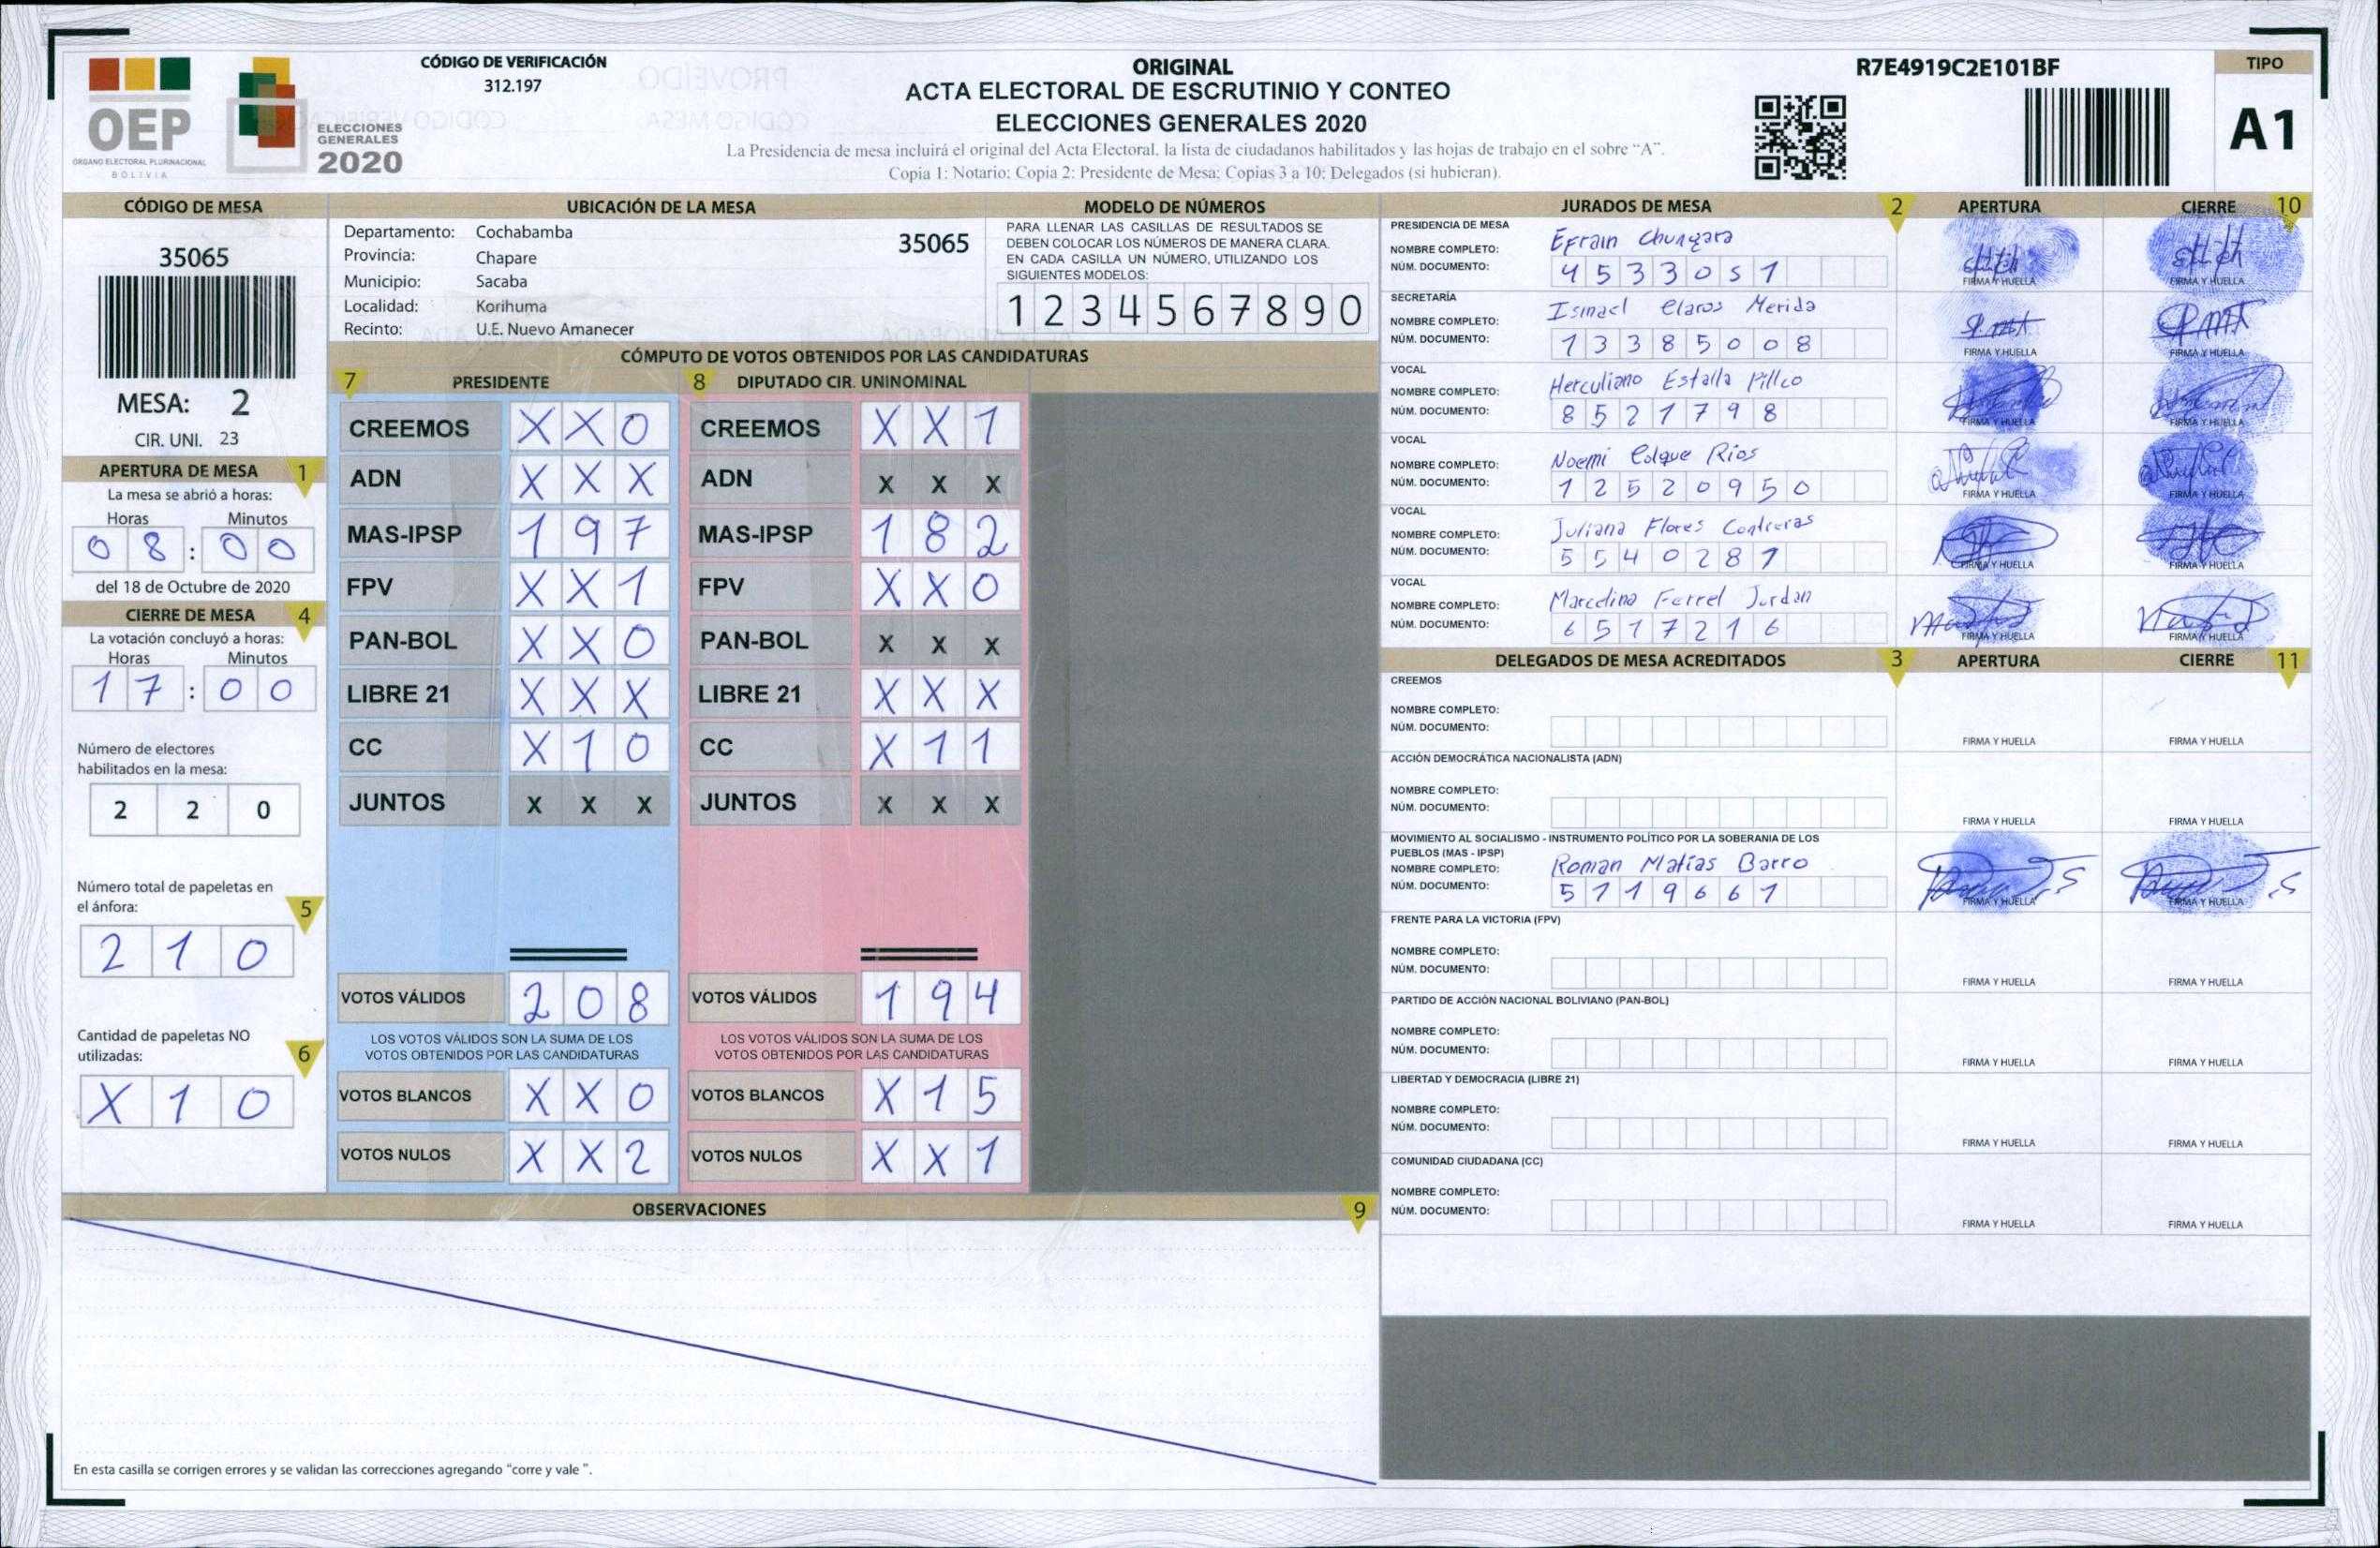 OEP
ÓRGANO ELECTORAL PLURINACIONAL
BOLIVIA
ELECCIONES
GENERALES
2020
CÓDIGO DE VERIFICACIÓN
312.197
ORIGINAL
ACTA ELECTORAL DE ESCRUTINIO Y CONTEO
ELECCIONES GENERALES 2020
La Presidencia de mesa incluirá el original del Acta Electoral, la lista de ciudadanos habilitados y las hojas de trabajo en el sobre “A”.
Copia 1: Notario; Copia 2: Presidente de Mesa; Copias 3 a 10: Delegados (si hubieran).
R7E4919C2E101BF
TIPO
A1
CÓDIGO DE MESA
35065
MESA: 2
CIR. UNI. 23
APERTURA DE MESA 1
La mesa se abrió a horas:
Horas Minutos
0 8 : 0 0
del 18 de Octubre de 2020
CIERRE DE MESA 4
La votación concluyó a horas:
Horas Minutos
1 7 : 0 0
Número de electores
habilitados en la mesa:
2 2 0
Número total de papeletas en
el ánfora: 5
2 1 0
Cantidad de papeletas NO
utilizadas: 6
X 1 0
UBICACIÓN DE LA MESA
Departamento: Cochabamba
Provincia: Chapare
Municipio: Sacaba
Localidad: Korihuma
Recinto: U.E. Nuevo Amanecer
35065
MODELO DE NÚMEROS
PARA LLENAR LAS CASILLAS DE RESULTADOS SE
DEBEN COLOCAR LOS NÚMEROS DE MANERA CLARA.
EN CADA CASILLA UN NÚMERO, UTILIZANDO LOS
SIGUIENTES MODELOS:
1 2 3 4 5 6 7 8 9 0
CÓMPUTO DE VOTOS OBTENIDOS POR LAS CANDIDATURAS
7 PRESIDENTE
CREEMOS X X 0
ADN X X X
MAS-IPSP 1 9 7
FPV X X 1
PAN-BOL X X 0
LIBRE 21 X X X
CC X 1 0
JUNTOS X X X
VOTOS VÁLIDOS 2 0 8
LOS VOTOS VÁLIDOS SON LA SUMA DE LOS
VOTOS OBTENIDOS POR LAS CANDIDATURAS
VOTOS BLANCOS X X 0
VOTOS NULOS X X 2
8 DIPUTADO CIR. UNINOMINAL
CREEMOS X X 1
ADN X X X
MAS-IPSP 1 8 2
FPV X X 0
PAN-BOL X X X
LIBRE 21 X X X
CC X 1 1
JUNTOS X X X
VOTOS VÁLIDOS 1 9 4
LOS VOTOS VÁLIDOS SON LA SUMA DE LOS
VOTOS OBTENIDOS POR LAS CANDIDATURAS
VOTOS BLANCOS X 1 5
VOTOS NULOS X X 1
OBSERVACIONES 9
En esta casilla se corrigen errores y se validan las correcciones agregando “corre y vale ”.
JURADOS DE MESA 2 APERTURA CIERRE 10
PRESIDENCIA DE MESA
NOMBRE COMPLETO: Efrain Chungara
NÚM. DOCUMENTO: 4 5 3 3 0 5 1
FIRMA Y HUELLA FIRMA Y HUELLA
SECRETARÍA
NOMBRE COMPLETO: Ismael Claros Merida
NÚM. DOCUMENTO: 1 3 3 8 5 0 0 8
FIRMA Y HUELLA FIRMA Y HUELLA
VOCAL
NOMBRE COMPLETO: Herculiano Estalla Pillco
NÚM. DOCUMENTO: 8 5 2 1 7 9 8
FIRMA Y HUELLA FIRMA Y HUELLA
VOCAL
NOMBRE COMPLETO: Noemi Colque Rios
NÚM. DOCUMENTO: 1 2 5 2 0 9 5 0
FIRMA Y HUELLA FIRMA Y HUELLA
VOCAL
NOMBRE COMPLETO: Juliana Flores Contreras
NÚM. DOCUMENTO: 5 5 4 0 2 8 1
FIRMA Y HUELLA FIRMA Y HUELLA
VOCAL
NOMBRE COMPLETO: Marcelina Ferrel Jordan
NÚM. DOCUMENTO: 6 5 1 7 2 1 6
FIRMA Y HUELLA FIRMA Y HUELLA
DELEGADOS DE MESA ACREDITADOS 3 APERTURA CIERRE 11
CREEMOS
NOMBRE COMPLETO:
NÚM. DOCUMENTO:
FIRMA Y HUELLA FIRMA Y HUELLA
ACCIÓN DEMOCRÁTICA NACIONALISTA (ADN)
NOMBRE COMPLETO:
NÚM. DOCUMENTO:
FIRMA Y HUELLA FIRMA Y HUELLA
MOVIMIENTO AL SOCIALISMO - INSTRUMENTO POLÍTICO POR LA SOBERANIA DE LOS
PUEBLOS (MAS - IPSP)
NOMBRE COMPLETO: Roman Matias Barro
NÚM. DOCUMENTO: 5 1 1 9 6 6 1
FIRMA Y HUELLA FIRMA Y HUELLA
FRENTE PARA LA VICTORIA (FPV)
NOMBRE COMPLETO:
NÚM. DOCUMENTO:
FIRMA Y HUELLA FIRMA Y HUELLA
PARTIDO DE ACCIÓN NACIONAL BOLIVIANO (PAN-BOL)
NOMBRE COMPLETO:
NÚM. DOCUMENTO:
FIRMA Y HUELLA FIRMA Y HUELLA
LIBERTAD Y DEMOCRACIA (LIBRE 21)
NOMBRE COMPLETO:
NÚM. DOCUMENTO:
FIRMA Y HUELLA FIRMA Y HUELLA
COMUNIDAD CIUDADANA (CC)
NOMBRE COMPLETO:
NÚM. DOCUMENTO:
FIRMA Y HUELLA FIRMA Y HUELLA